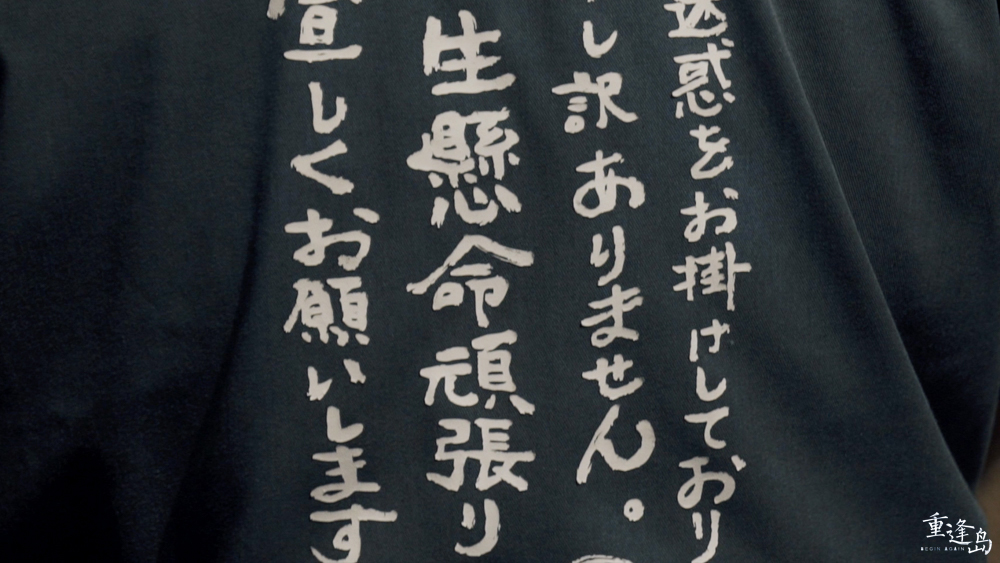 迷惑をお掛けしており
し訳ありません。
生懸命頑張り
宜しくお願いします
重逢島
BEGIN AGAIN